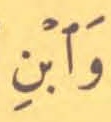 وَٱبْنِ